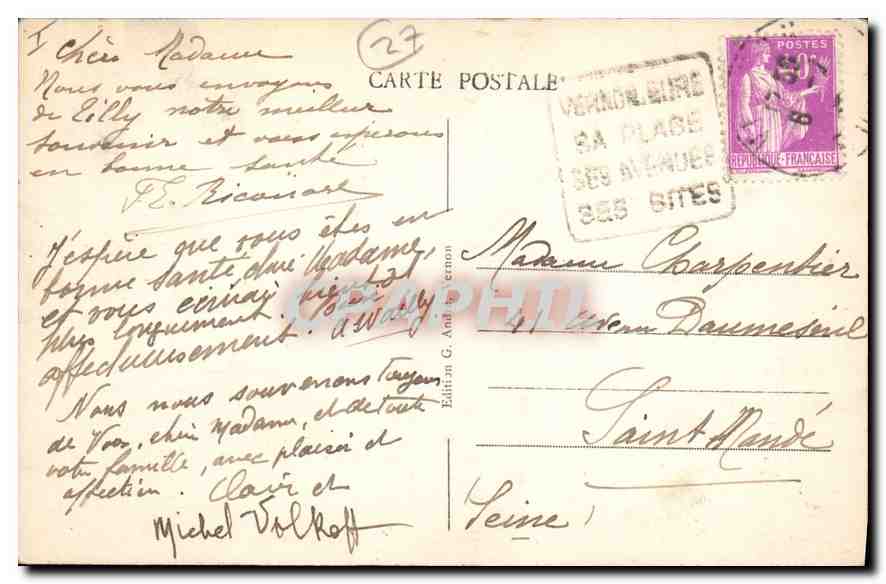 27
Chère Madame
Nous vous envoyons
de Tilly notre meilleur
souvenir et vous espérons
en bonne santé
J'espère que vous êtes en
bonne santé chère Madame,
et vous écrirai bientôt
plus longuement. Bien
affectueusement. A Wailly.
Nous nous souvenons toujours
de Vous, chère Madame, et de toute
votre famille, avec plaisir et
affection. Claire et
Michel Volkoff
CARTE POSTALE
Edition G. André, Vernon
VERNON. EURE
SA PLAGE
SES AVENUES
SES SITES
POSTES
REPUBLIQUE FRANÇAISE
Madame Charpentier
41 Avenu Daumesnil
Saint Mandé
Seine
CPAPHIL